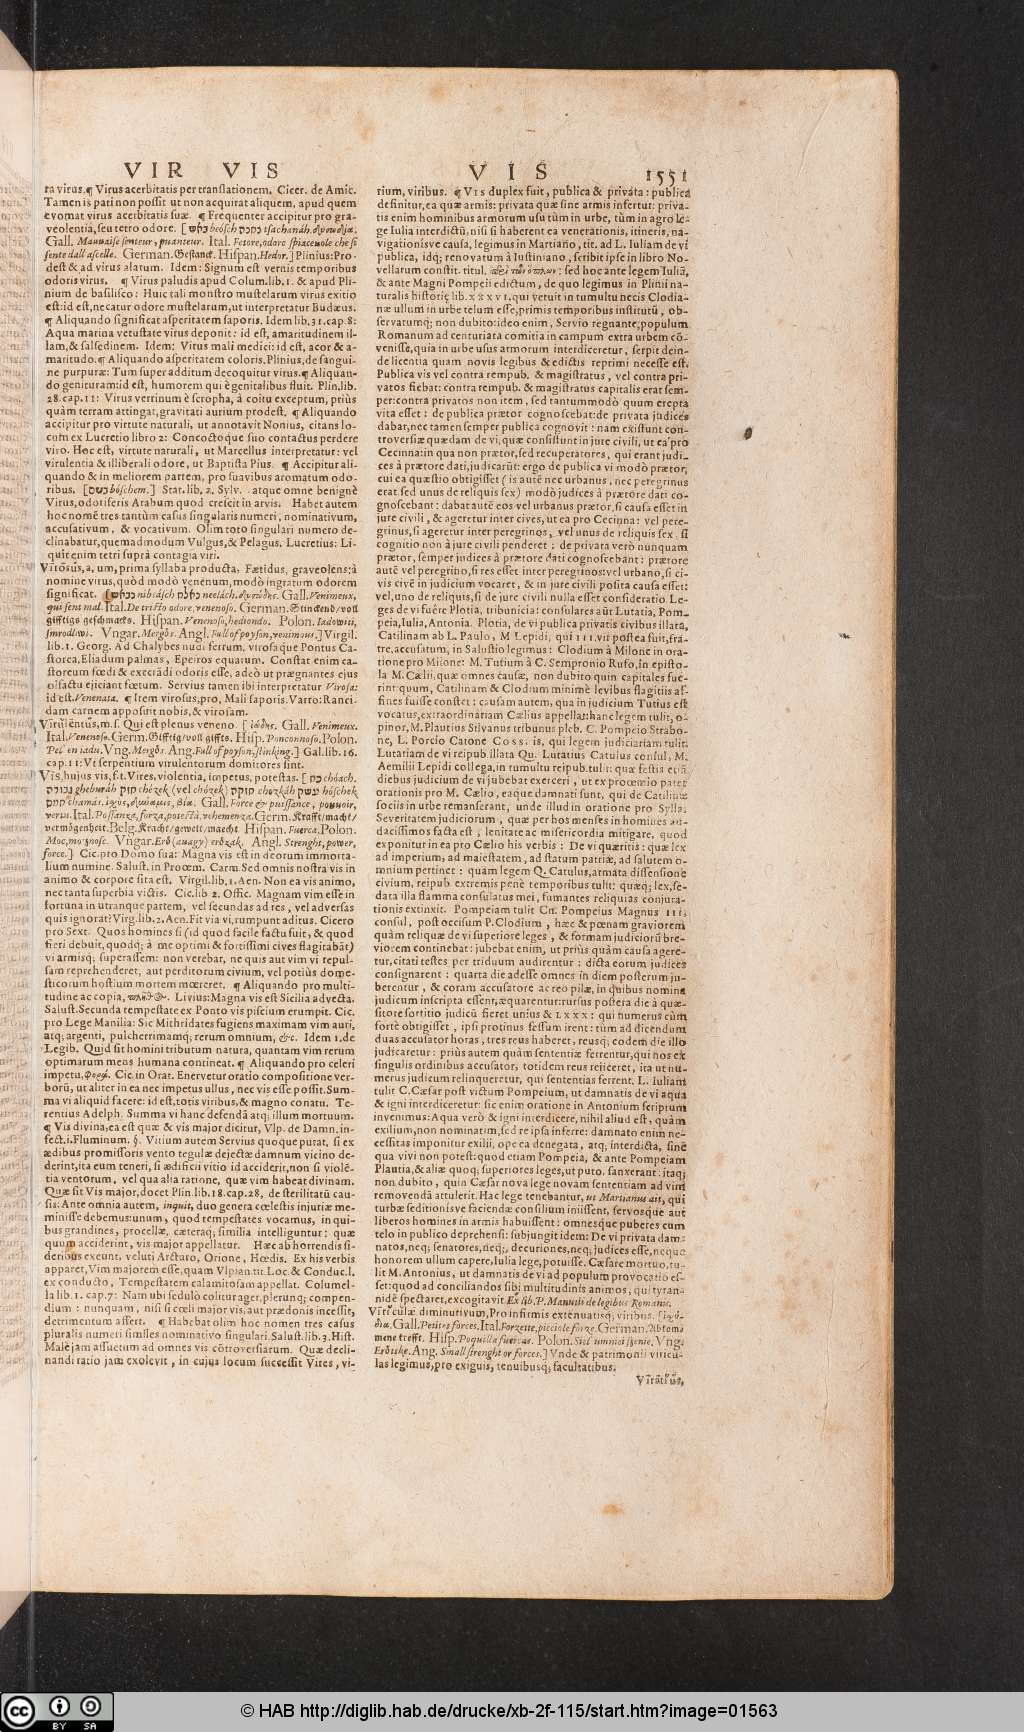 VIR VIS
ta virus.¶ Virus acerbitatis per translationem. Cicer. de Amic.
Tamen is pati non possit ut non acquirat aliquem, apud quem
evomat virus acerbitatis suæ. ¶ Frequenter accipitur pro gra-
veolentia, seu tetro odore.
Gall. Mauvaise senteur, puanteur. Ital. Fetore, odore spiacevole che si
sente dall ascelle. German. Gestanck. Hispan. Hedor.] Plinius: Pro-
dest & ad virus alatum. Idem: Signum est vernis temporibus
odoris virus. ¶ Virus paludis apud Colum. lib. 1. & apud Pli-
nium de basilisco: Huic tali monstro mustelarum virus exitio
est: id est, necatur odore mustelarum, ut interpretatur Budæus.
¶ Aliquando significat asperitatem saporis. Idem lib. 31. cap. 8:
Aqua marina vetustate virus deponit: id est, amaritudinem il-
lam, & salsedinem. Idem: Virus mali medici: id est, acor & a-
maritudo. ¶ Aliquando asperitatem coloris. Plinius, de sangui-
ne purpuræ: Tum super additum decoquitur virus. ¶ Aliquan-
do genituram: id est, humorem qui è genitalibus fluit. Plin. lib.
28. cap. 11: Virus verrinum è scropha, à coitu exceptum, priùs
quàm terram attingat, gravitati aurium prodest. ¶ Aliquando
accipitur pro virtute naturali, ut annotavit Nonius, citans lo-
cum ex Lucretio libro 2: Concoctoque suo contactus perdere
viro. Hoc est, virtute naturali, ut Marcellus interpretatur: vel
virulentia & illiberali odore, ut Baptista Pius. ¶ Accipitur ali-
quando & in meliorem partem, pro suavibus aromatum odo-
ribus. [בשם bóschem.] Stat. lib. 2. Sylv. atque omne benignè
Virus, odotiferis Arabum quod crescit in arvis. Habet autem
hoc nomē tres tantùm casus singularis numeri, nominativum,
accusativum, & vocativum. Olim toto singulari numero de-
clinabatur, quemadmodum Vulgus, & Pelagus. Lucretius: Li-
quit enim tetri suprà contagia viri.
Vīrōsŭs, a, um, prima syllaba producta. Fætidus, graveolens: à
nomine virus, quòd modò venenum, modò ingratum odorem
significat. Gall. Venimeux,
qui sent mal. Ital. De tristo odore, venenoso. German. Stinckend/voll
gifftigs geschmacks. Hispan. Venenoso, hediondo. Polon. Iadowiti,
smrodliwi. Vngar. Mergŏs. Angl. Full of poyson, venimous.] Virgil.
lib. 1. Georg. Ad Chalybes nudi ferrum, virosaque Pontus Ca-
storea, Eliadum palmas, Epeiros equarum. Constat enim ca-
storeum fœdi & execrādi odoris esse, adeò ut prægnantes ejus
olfactu ejiciant fœtum. Servius tamen ibi interpretatur Virosa:
id est, Venenata. ¶ Item virosus, pro, Mali saporis. Varro: Ranci-
dam carnem apposuit nobis, & virosam.
Vīrŭlēntŭs, m. s. Qui est plenus veneno. Gall. Venimeux.
Ital. Venenoso. Germ. Gifftig/voll giffts. Hisp. Ponconnoso. Polon.
Pel en iadu. Vng. Mergŏs. Ang. Full of poyson, stinking.] Gal. lib. 16.
cap. 11: Vt serpentium virulentorum domitores sint.
Vis, hujus vis, f. t. Vires, violentia, impetus, potestas. [כח chóach.
גבורה gheburáh חזק chézek (vel chózek) חזקה chozkáh
chamás. Gall. Force & puissance, pouvoir,
vertu. Ital. Possanza, forza, potestà, vehemenza. Germ. Krafft/macht/
vermögenheit. Belg. Kracht/gewelt/maecht. Hispan. Fuerca. Polon.
Moc, mo nosc. Vngar. Erŏ (auagy) erŏzak. Angl. Strenght, power,
force.] Cic. pro Domo sua: Magna vis est in deorum immorta-
lium numine. Salust. in Proœm. Carm. Sed omnis nostra vis in
animo & corpore sita est. Virgil. lib. 1. Aen. Non ea vis animo,
nec tanta superbia victis. Cic. lib 2. Offic. Magnam vim esse in
fortuna in utranque partem, vel secundas ad res, vel adversas
quis ignorat? Virg. lib. 2. Aen. Fit via vi, rumpunt aditus. Cicero
pro Sext. Quos homines si (id quod facile factu fuit, & quod
fieri debuit, quodq; à me optimi & fortissimi cives flagitabāt)
vi armisq; superassem: non verebar, ne quis aut vim vi repul-
sam reprehenderet, aut perditorum civium, vel potiùs dome-
sticorum hostium mortem mœreret. ¶ Aliquando pro multi-
tudine ac copia, πλῆθος. Livius: Magna vis est Sicilia advecta.
Salust. Secunda tempestate ex Ponto vis piscium erumpit. Cic.
pro Lege Manilia: Sic Mithridates fugiens maximam vim auri,
atq; argenti, pulcherrimamq; rerum omnium, &c. Idem 1. de
Legib. Quid sit homini tributum natura, quantam vim rerum
optimarum mens humana contineat. ¶ Aliquando pro celeri
impetu, φορά. Cic. in Orat. Enervetur oratio compositione ver-
borū, ut aliter in ea nec impetus ullus, nec vis esse possit. Sum-
ma vi aliquid facere: id est, totis viribus, & magno conatu. Te-
rentius Adelph. Summa vi hanc defendā atq; illum mortuum.
¶ Vis divina, ea est quæ & vis major dicitur, Vlp. de Damn. in-
fect. i. Fluminum. §. Vitium autem Servius quoque putat, si ex
ædibus promissoris vento tegulæ dejectæ damnum vicino de-
derint, ita eum teneri, si ædificii vitio id acciderit, non si violē-
tia ventorum, vel qua alia ratione, quæ vim habeat divinam.
Quæ sit Vis major, docet Plin. lib. 18. cap. 28, de sterilitatū cau-
sis: Ante omnia autem, inquit, duo genera cœlestis injuriæ me-
minisse debemus: unum, quod tempestates vocamus, in qui-
bus grandines, procellæ, cæteraq; similia intelliguntur: quæ
quum acciderint, vis major appellatur. Hæc ab horrendis si-
deribus exeunt, veluti Arcturo, Orione, Hœdis. Ex his verbis
apparet, Vim majorem esse, quam Vlpian. tit. Loc. & Conduc. l.
ex conducto, Tempestatem calamitosam appellat. Columel-
la lib. 1. cap. 7: Nam ubi sedulò colitur ager, plerunq; compen-
dium: nunquam, nisi si cœli major vis, aut prædonis incessit,
detrimentum affert. ¶ Habebat olim hoc nomen tres casus
pluralis numeri similes nominativo singulari. Salust. lib. 3. Hist.
Malè jam assuetum ad omnes vis cōtroversiarum. Quæ decli-
nandi ratio jam exolevit, in cujus locum successit Vires, vi-
VIS 1551
rium, viribus. ¶ VIS duplex fuit, publica & privata: publica
definitur, ea quæ armis: privata quæ sine armis infertur: priva-
tis enim hominibus armorum usu tùm in urbe, tùm in agro le-
ge Iulia interdictū, nisi si haberent ea venerationis, itineris, na-
vigationisve causa, legimus in Martiano, tit. ad L. Iuliam de vi
publica, idq; renovatum à Iustiniano, scribit ipse in libro No-
vellarum constit. titul. περὶ τῶν ὅπλων: sed hoc ante legem Iuliā,
& ante Magni Pompeii edictum, de quo legimus in Plinii na-
turalis historię lib. xxxvi. qui vetuit in tumultu necis Clodia-
næ ullum in urbe telum esse, primis temporibus institutū, ob-
servatumq; non dubito: ideo enim, Servio regnante, populum
Romanum ad centuriata comitia in campum extra urbem cō-
venisse, quia in urbe usus armorum interdiceretur, serpit dein-
de licentia quam novis legibus & edictis reprimi necesse est.
Publica vis vel contra rempub. & magistratus, vel contra pri-
vatos fiebat: contra rempub. & magistratus capitalis erat sem-
per: contra privatos non item, sed tantummodò quum erepta
vita esset: de publica prætor cognoscebat: de privata judices
dabat, nec tamen semper publica cognovit: nam existunt con-
troversiæ quædam de vi, quæ consistunt in jure civili, ut ea pro
Cecinna: in qua non prætor, sed recuperatores, qui erant judi-
ces à prætore dati, judicarūt: ergo de publica vi modò prætor,
cui ea quæstio obtigisset (is autē nec urbanus, nec peregrinus
erat, sed unus de reliquis sex) modò judices à prætore dati co-
gnoscebant: dabat autē eos vel urbanus prætor, si causa esset in
jure civili, & ageretur inter cives, ut ea pro Cecinna: vel pere-
grinus, si ageretur inter peregrinos, vel unus de reliquis sex, si
cognitio non à jure civili penderet: de privata verò nunquam
prætor, semper judices à prætore dati cognoscebant: prætore
autē vel peregrino, si res esset inter peregrinos: vel urbano, si ci-
vis civē in judicium vocaret, & in jure civili posita causa esset:
vel, uno de reliquis, si de jure civili nulla esset consideratio. Le-
ges de vi fuêre Plotia, tribunicia: consulares aūt Lutatia, Pom-
peia, Iulia, Antonia. Plotia, de vi publica privatis civibus illata,
Catilinam ab L. Paulo, M Lepidi, qui III. vir postea fuit, fra-
tre, accusatum, in Salustio legimus: Clodium à Milone in ora-
tione pro Milone: M. Tutium à C. Sempronio Rufo, in episto-
la M. Cælii, quæ omnes causæ, non dubito quin capitales fue-
rint: quum, Catilinam & Clodium minimè levibus flagitiis af-
fines fuisse constet: causam autem, qua in judicium Tutius est
vocatus, extraordinariam Cælius appellat: hanc legem tulit, o-
pinor, M. Plautius Silvanus tribunus pleb. C. Pompeio Strabo-
ne, L. Porcio Catone Coss. is, qui legem judiciariam tulit.
Lutatiam de vi reipub illata Qu. Lutatius Catulus consul, M.
Aemilii Lepidi collega, in tumultu reipub. tulit: quæ festis etiā
diebus judicium de vi jubebat exerceri, ut ex proœmio patet
orationis pro M. Cælio, eaque damnati sunt, qui de Catilinæ
sociis in urbe remanserant, unde illud in oratione pro Sylla:
Severitatem judiciorum, quæ per hos menses in homines au-
dacissimos facta est, lenitate ac misericordia mitigare, quod
exponitur in ea pro Cælio his verbis: De vi quæritis: quæ lex
ad imperium, ad maiestatem, ad statum patriæ, ad salutem o-
mnium pertinet: quàm legem Q. Catulus, armata dissensione
civium, reipub. extremis penè temporibus tulit: quæq; lex, se-
data illa flamma consulatus mei, fumantes reliquias conjura-
tionis extinxit. Pompeiam tulit Cn. Pompeius Magnus III.
consul, post occisum P. Clodium, hæc & pœnam graviorem
quàm reliquæ de vi superiore leges, & formam judiciorū bre-
viorem continebat: jubebat enim, ut priùs quàm causa agere-
tur, citati testes per triduum audirentur: dicta eorum judices
consignarent: quarta die adesse omnes in diem posterum ju-
berentur, & coram accusatore ac reo pilæ, in quibus nomina
judicum inscripta essent, æquarentur: rursus postera die à quæ-
sitore sortitio judicū fieret unius & LXXX: qui numerus cùm
fortè obtigisset, ipsi protinus sessum irent: tùm ad dicendum
duas accusator horas, tres reus haberet, reusq; eodem die illo
judicaretur: priùs autem quàm sententiæ ferrentur, qui nos ex
singulis ordinibus accusator, totidem reus reiiceret, ita ut nu-
merus judicum relinqueretur, qui sententias ferrent. L. Iuliam
tulit C. Cæsar post victum Pompeium, ut damnatis de vi aqua
& igni interdiceretur: sic enim oratione in Antonium scriptum
invenimus: Aqua verò & igni interdicere, nihil aliud est, quàm
exilium, non nominatim, sed re ipsa inferre: damnato enim ne-
cessitas imponitur exilii, ope ea denegata, atq; interdicta, sine
qua vivi non potest: quod etiam Pompeia, & ante Pompeiam
Plautia, & aliæ quoq; superiores leges, ut puto, sanxerant: itaq;
non dubito, quin Cæsar nova lege novam sententiam ad vim
removendā attulerit. Hac lege tenebantur, ut Martianus ait, qui
turbæ seditionisve faciendæ consilium iniissent, servosque aut
liberos homines in armis habuissent: omnesque puberes cum
telo in publico deprehensi: subjungit idem: De vi privata dam-
natos, neq; senatores, neq; decuriones, neq; judices esse, neque
honorem ullum capere, Iulia lege, potuisse. Cæsare mortuo, tu-
lit M. Antonius, ut damnatis de vi ad populum provocatio es-
set: quod ad conciliandos sibi multitudinis animos, qui tyran-
nidē spectaret, excogitavit. Ex lib. P. Manutii de legibus Romanis.
Vīrĭcŭlæ, diminutivum, Pro infirmis extenuatisq; viribus.
Gall. Petites forces. Ital. Forzette, picciole forze. German. Abkomme
mene krefft. Hisp. Poquilla fuercas. Polon. Vng.
Erŏtske. Ang. Small strenght or forces.] Vnde & patrimonii viricu-
las legimus, pro exiguis, tenuibusq; facultatibus.
Vīrātĭŭs,
© HAB http://diglib.hab.de/drucke/xb-2f-115/start.htm?image=01563
cc BY SA